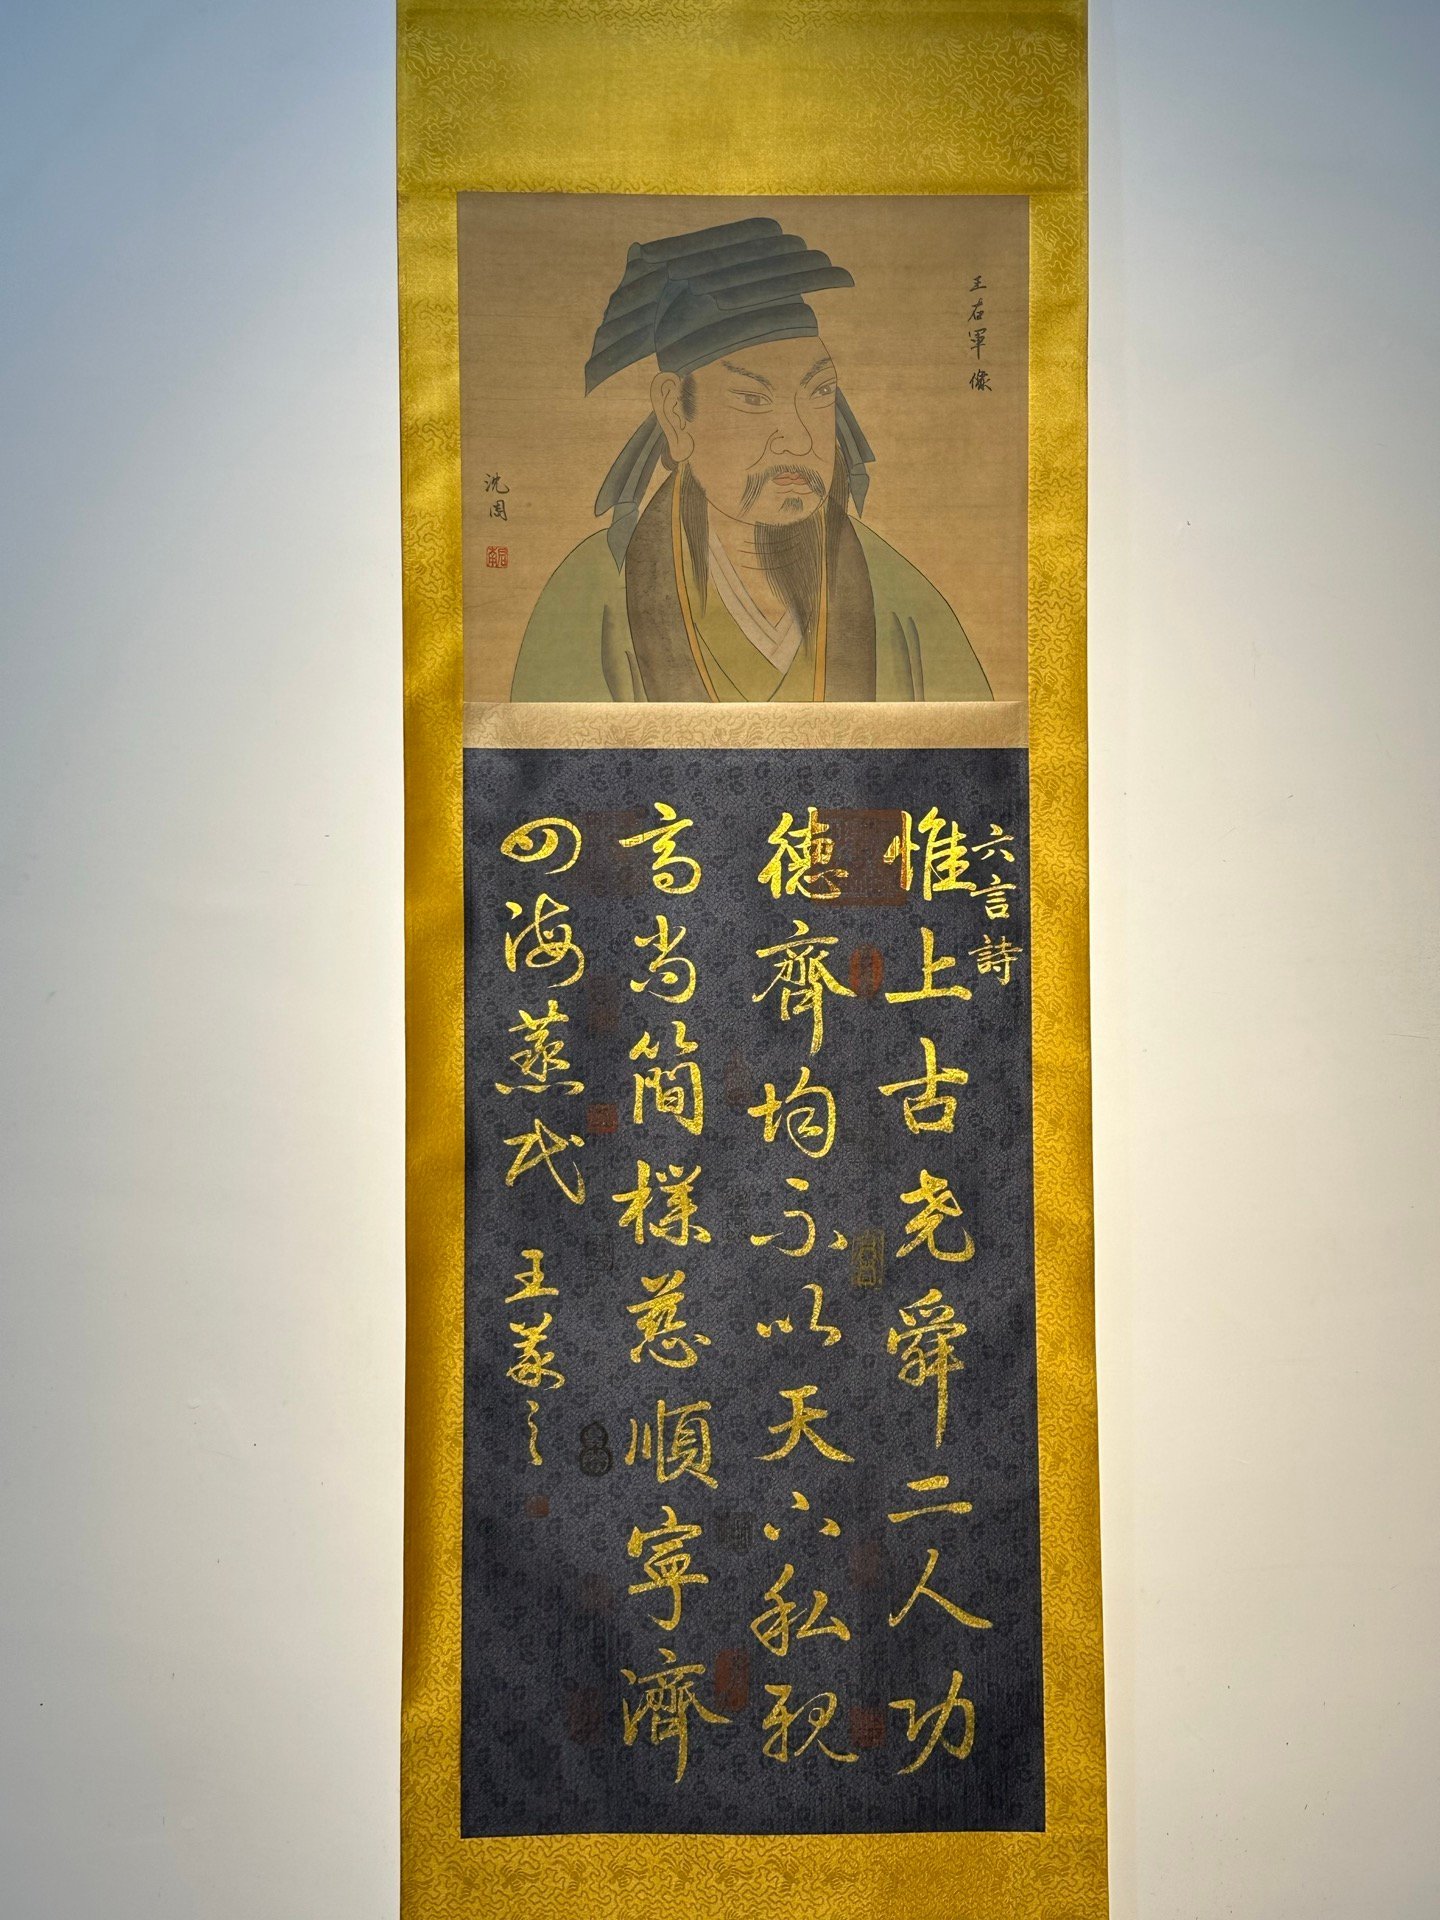 王右軍像
沈周
六言詩
惟上古尧舜二人功
德齊均不以天下私親
高尚簡樸慈順寧濟
四海蒸民
王羲之